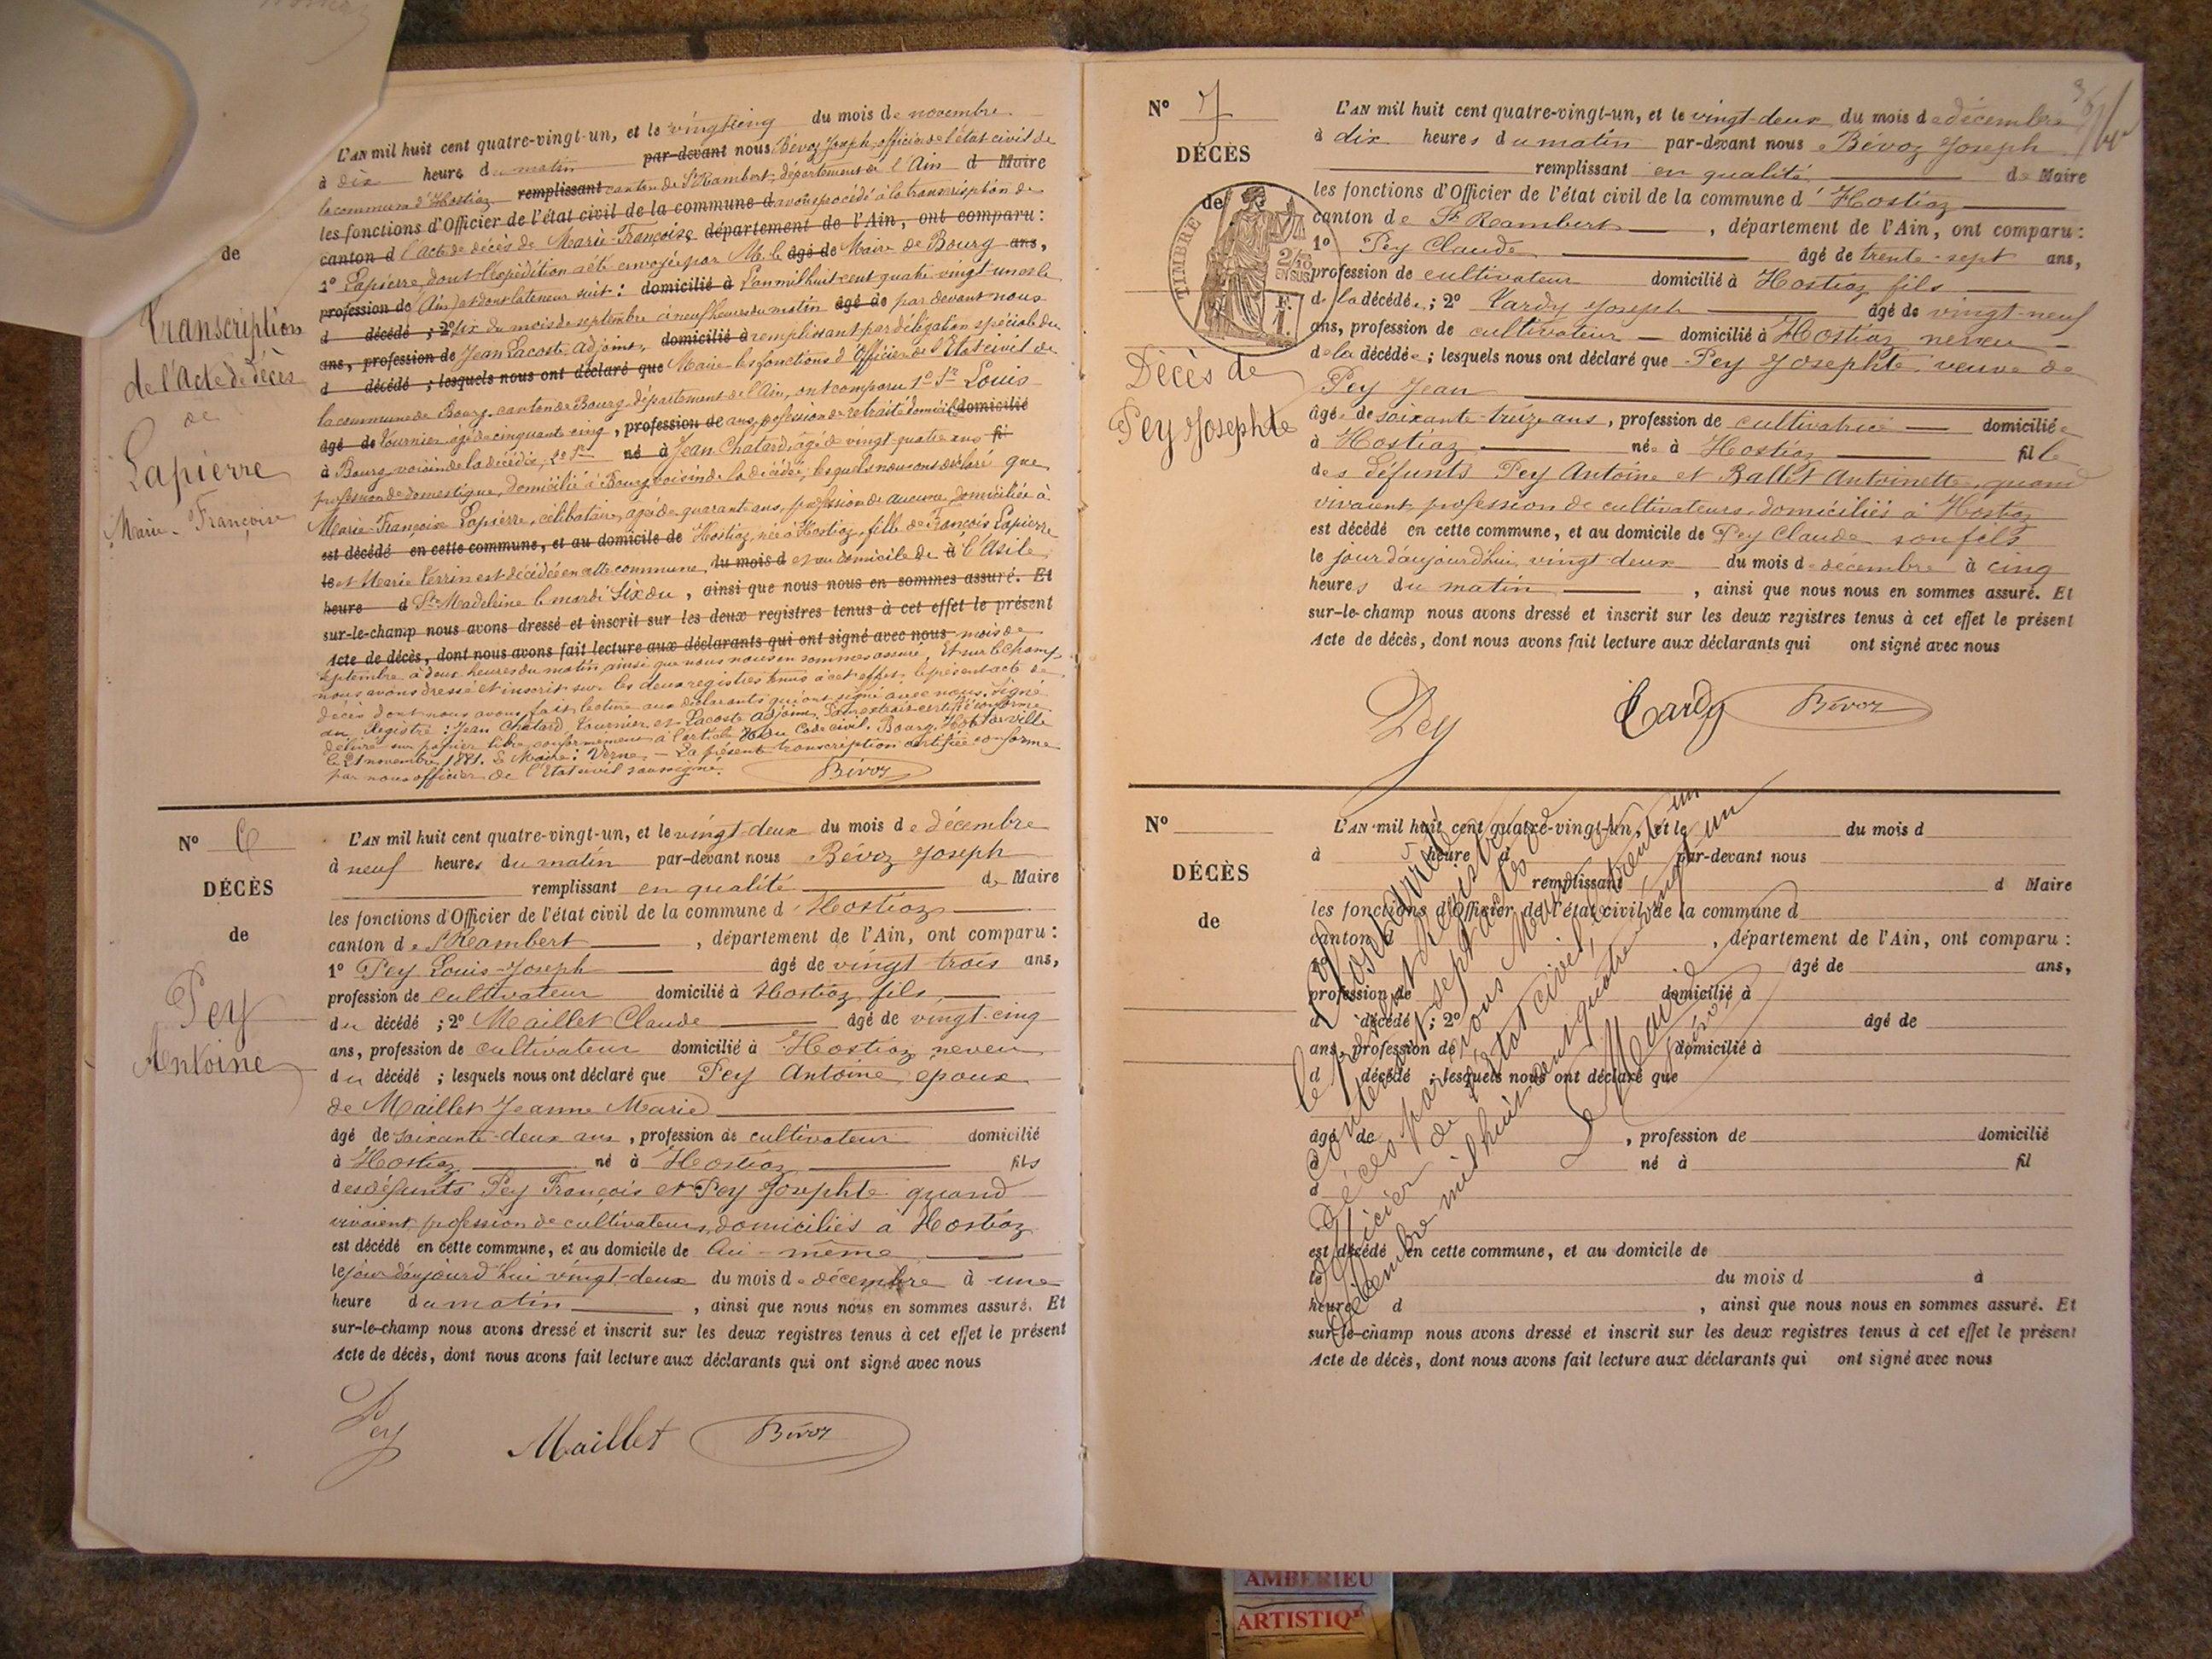 de
Transcription
de l'Acte de décès
de
Lapierre
Marie-Françoise
L'AN mil huit cent quatre-vingt-un, et le vingt cinq du mois de novembre
à dix heures du matin par-devant nous Bévoz Joseph, officier de l'état civil de
la commune d'Hostiaz remplissant canton de St Rambert, département de l'Ain d Maire
les fonctions d'Officier de l'état civil de la commune d avons procédé à la transcription de
canton d l'acte de décès de Marie-Françoise département de l'Ain, ont comparu:
1º Lapierre, dont l'expédition a été envoyée par M. le âgé de Maire de Bourg ans,
profession de (Ain) et dont la teneur suit: domicilié à L'an mil huit cent quatre vingt-un et le
d décédé; 2º six du mois de septembre à neuf heures du matin âgé de par devant nous
ans, profession de Jean Lacoste, adjoint, domicilié à remplissant par délégation spéciale du
d décédé; lesquels nous ont déclaré que Maire les fonctions d'Officier de l'Etat civil de
la commune de Bourg, canton de Bourg, département de l'Ain, ont comparu 1º Sr Louis
âgé de Tournier, âgé de cinquante cinq, profession de ans, profession de retraité domicilié domicilié
à Bourg, voisin de la décédée, 2º Sr né à Jean Chatard, âgé de vingt-quatre ans fil
profession de domestique, domicilié à Bourg, voisin de la décédée, lesquels nous ont déclaré que
Marie-Françoise Lapierre, célibataire, âgée de quarante ans, profession de aucune, domiciliée à
est décédé en cette commune, et au domicile de Hostiaz, née à Hostiaz, fille de François Lapierre
le et Marie Verrin est décédée en cette commune, du mois d et au domicile de à l'Asile
heure d Ste Madeleine le mardi six du, ainsi que nous nous en sommes assuré. Et
sur-le-champ nous avons dressé et inscrit sur les deux registres tenus à cet effet le présent
Acte de décès, dont nous avons fait lecture aux déclarants qui ont signé avec nous mois de
septembre à deux heures du matin, ainsi que nous nous en sommes assuré. Et sur le champ
nous avons dressé et inscrit sur les deux registres tenus à cet effet, le présent acte de
décès dont nous avons fait lecture aux déclarants qui ont signé avec nous. Signé
au Registre: Jean Chatard, Tournier et Lacoste adjoint. Pour extrait certifié conforme
délivré sur papier libre, conformément à l'article du Code civil. Bourg, Hôtel de Ville
le 21 novembre 1881. Le Maire: Verne. - La présente transcription certifiée conforme
par nous officier de l'Etat civil soussigné.
Bévoz
Nº 6
DÉCÈS
de
Pey
Antoine
L'AN mil huit cent quatre-vingt-un, et le vingt-deux du mois de décembre
à neuf heures du matin par-devant nous Bévoz Joseph
remplissant en qualité de Maire
les fonctions d'Officier de l'état civil de la commune d'Hostiaz
canton de St Rambert, département de l'Ain, ont comparu:
1º Pey Louis-Joseph âgé de vingt trois ans,
profession de cultivateur domicilié à Hostiaz, fils
du décédé; 2º Maillet Claude âgé de vingt-cinq
ans, profession de cultivateur domicilié à Hostiaz neveu
du décédé; lesquels nous ont déclaré que Pey Antoine, époux
de Maillet Jeanne Marie
âgé de soixante-deux ans, profession de cultivateur domicilié
à Hostiaz né à Hostiaz fils
des défunts Pey François et Pey Josephte quand
vivaient, profession de cultivateurs, domiciliés à Hostiaz
est décédé en cette commune, et au domicile de lui-même
le jour d'aujourd'hui vingt-deux du mois de décembre à une
heure du matin, ainsi que nous nous en sommes assuré. Et
sur-le-champ nous avons dressé et inscrit sur les deux registres tenus à cet effet le présent
Acte de décès, dont nous avons fait lecture aux déclarants qui ont signé avec nous
Pey
Maillet
Bévoz
Nº 7
DÉCÈS
de
TIMBRE
2/10
EN SUS
Décès de
Pey Josephte
L'AN mil huit cent quatre-vingt-un, et le vingt-deux du mois de décembre
à dix heures du matin par-devant nous Bévoz Joseph
remplissant en qualité de Maire
les fonctions d'Officier de l'état civil de la commune d'Hostiaz
canton de St Rambert, département de l'Ain, ont comparu:
1º Pey Claude âgé de trente-sept ans,
profession de cultivateur domicilié à Hostiaz fils
de la décédée; 2º Tardy Joseph âgé de vingt-neuf
ans, profession de cultivateur domicilié à Hostiaz neveu
de la décédée; lesquels nous ont déclaré que Pey Josephte, veuve de
Pey Jean
âgée de soixante-treize ans, profession de cultivatrice domiciliée
à Hostiaz née à Hostiaz fille
des défunts Pey Antoine et Ballet Antoinette, quand
vivaient profession de cultivateurs, domiciliés à Hostiaz
est décédé en cette commune, et au domicile de Pey Claude son fils
le jour d'aujourd'hui vingt-deux du mois de décembre à cinq
heures du matin, ainsi que nous nous en sommes assuré. Et
sur-le-champ nous avons dressé et inscrit sur les deux registres tenus à cet effet le présent
Acte de décès, dont nous avons fait lecture aux déclarants qui ont signé avec nous
Pey
Tardy
Bévoz
Nº
DÉCÈS
de
L'AN mil huit cent quatre-vingt-un, et le du mois d
à heure d par-devant nous
remplissant d Maire
les fonctions d'Officier de l'état civil de la commune d
canton d, département de l'Ain, ont comparu:
1º âgé de ans,
profession de domicilié à
d décédé; 2º âgé de
ans, profession de domicilié à
d décédé; lesquels nous ont déclaré que
âgé de, profession de domicilié
à né à fil
d
est décédé en cette commune, et au domicile de
le du mois d à
heure d, ainsi que nous nous en sommes assuré. Et
sur-le-champ nous avons dressé et inscrit sur les deux registres tenus à cet effet le présent
Acte de décès, dont nous avons fait lecture aux déclarants qui ont signé avec nous
Clos et arrêté
le présent Registre
contenant sept actes de
décès par nous Maire
officier de l'état civil, le trente un
décembre mil huit cent quatre-vingt-un
Le Maire
Bévoz
AMBERIEU
ARTISTIQUE